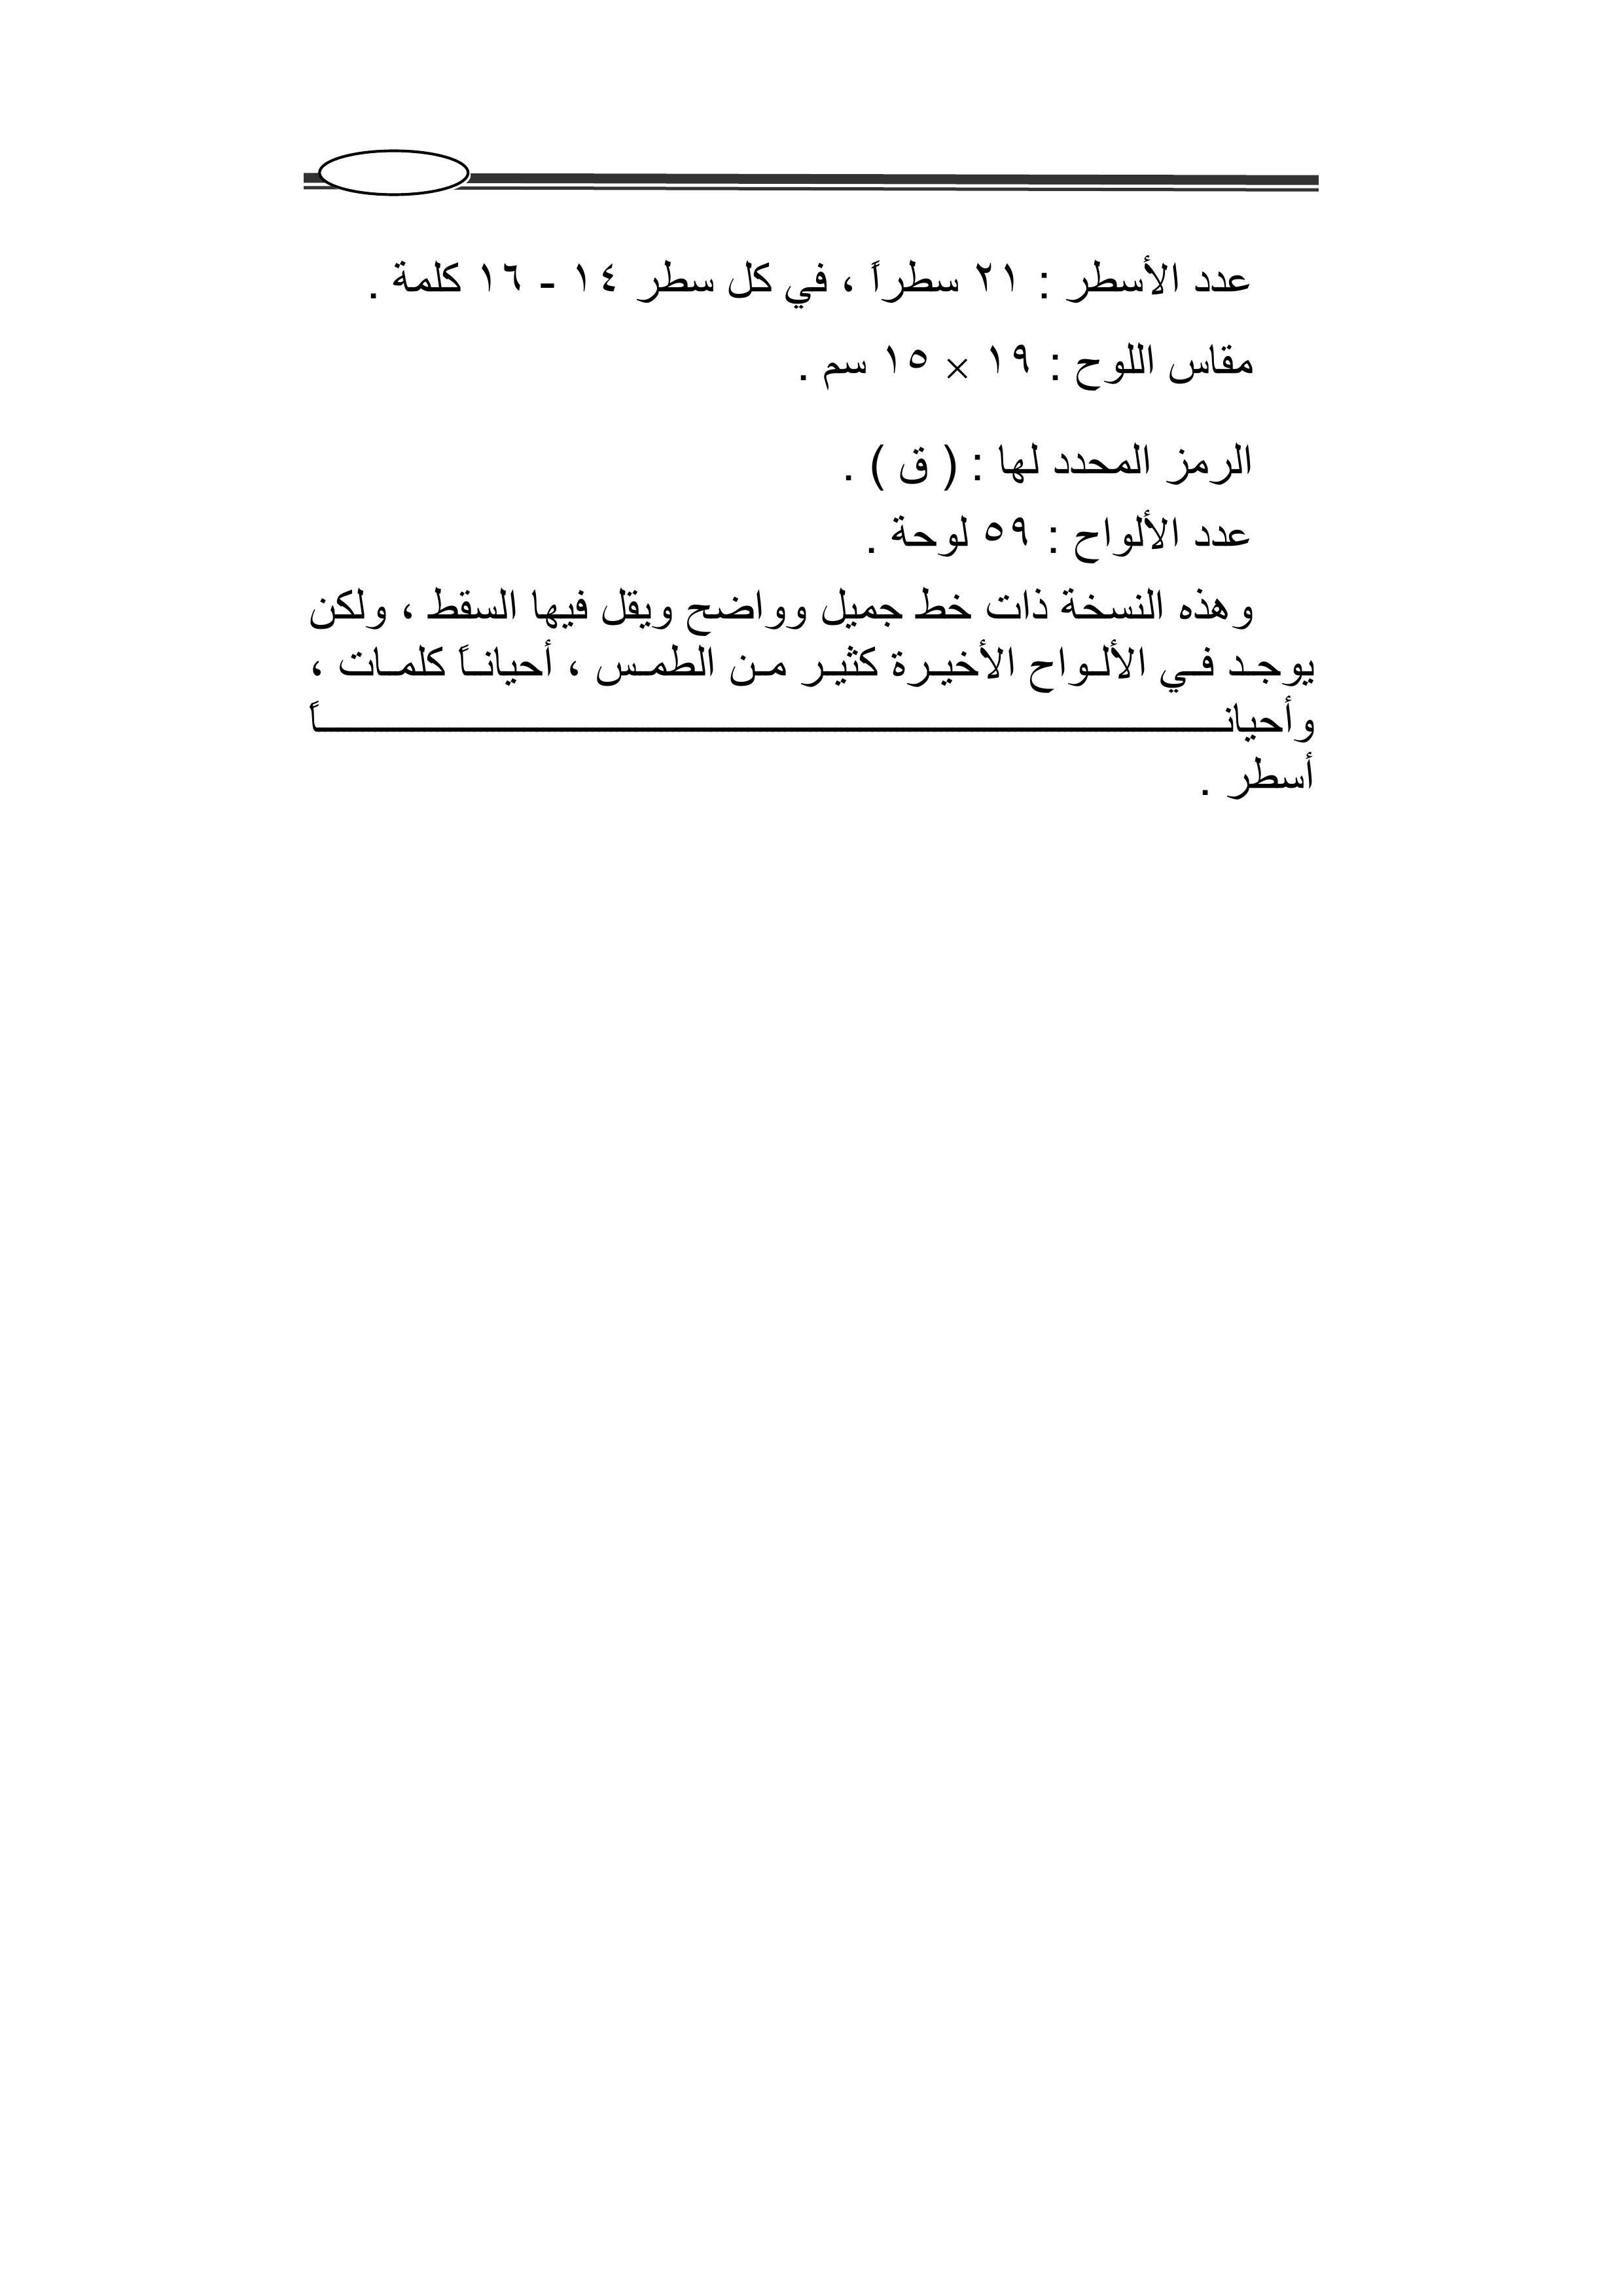 عدد الأسطر : ٢١ سطراً ، في كل سطر ١٤ - ١٦ كلمة .
مقاس اللوح : ١٩ × ١٥ سم .
الرمز المحدد لها : ( ق ) .
عدد الألواح : ٥٩ لوحة .
وهذه النسخة ذات خط جميل وواضح ويقل فيها السقط ، ولكن
يوجد في الألواح الأخيرة كثير من الطمس ، أحياناً كلمات ،
وأحياناً
أسطر .